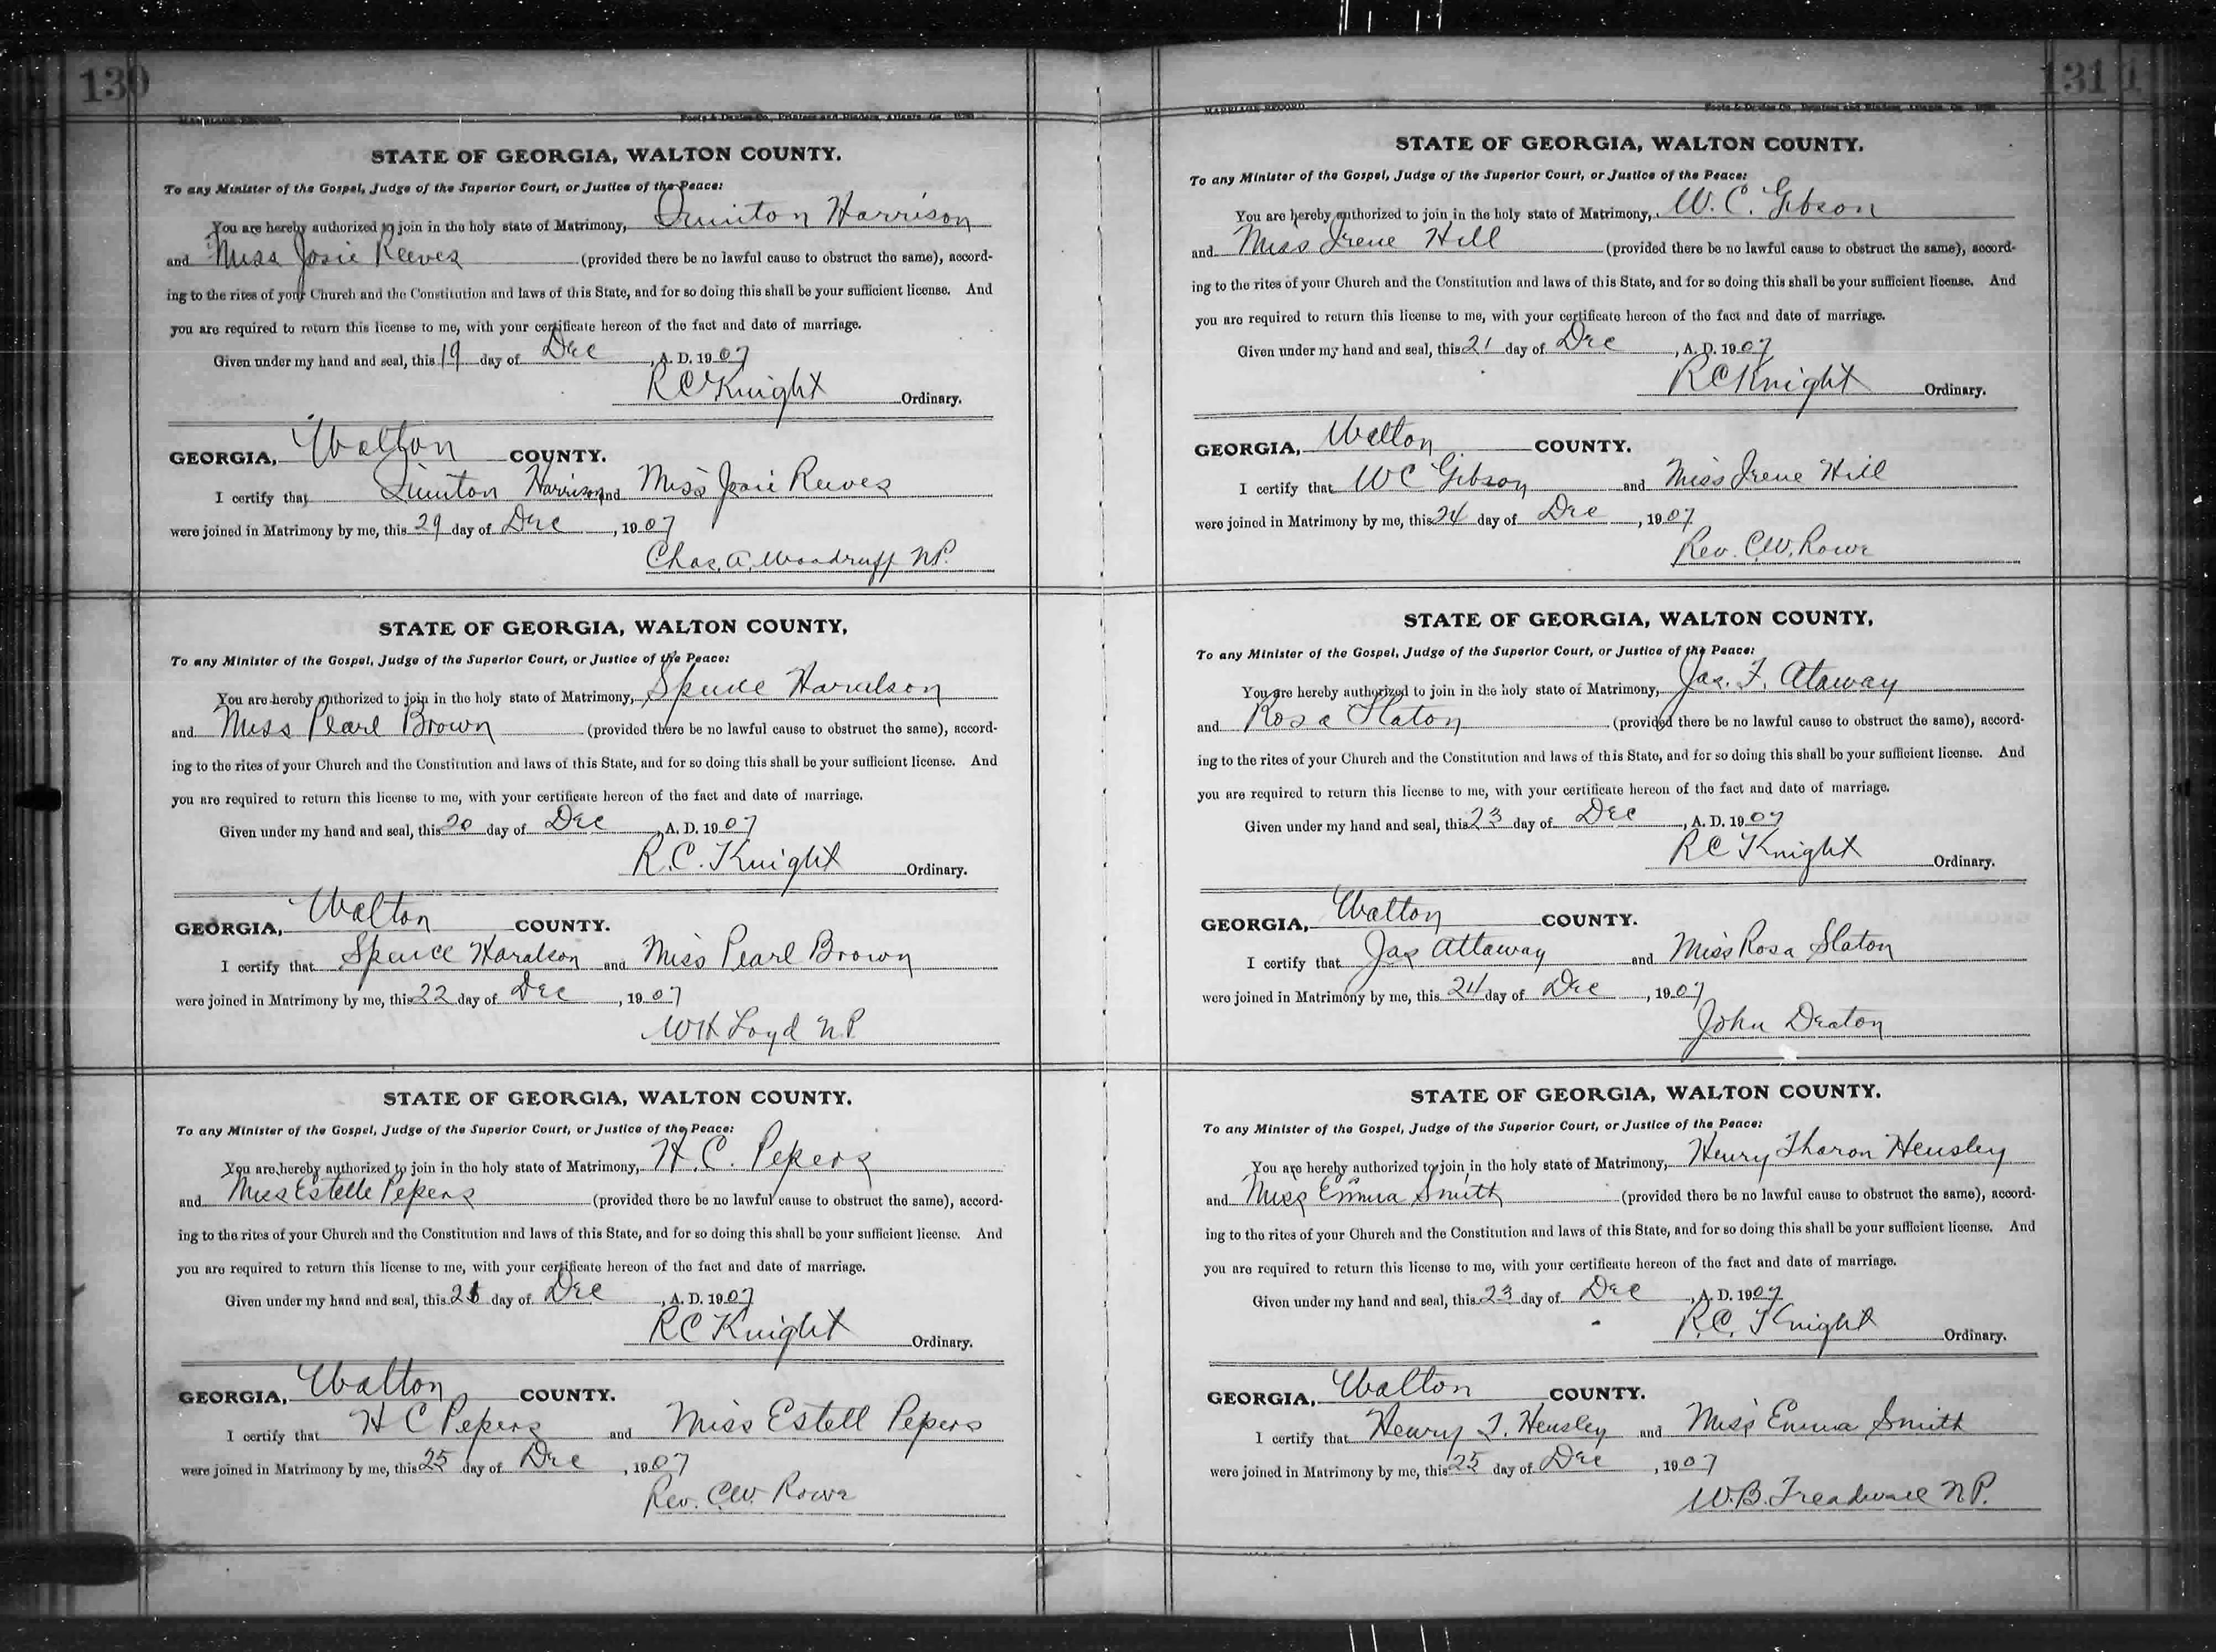 130
MARRIAGE RECORD. Foote & Davies Co., Printers and Binders, Atlanta, Ga.
STATE OF GEORGIA, WALTON COUNTY.
To any Minister of the Gospel, Judge of the Superior Court, or Justice of the Peace:
You are hereby authorized to join in the holy state of Matrimony, Quinton Harrison
and Miss Josie Reeves (provided there be no lawful cause to obstruct the same), accord-
ing to the rites of your Church and the Constitution and laws of this State, and for so doing this shall be your sufficient license. And
you are required to return this license to me, with your certificate hereon of the fact and date of marriage.
Given under my hand and seal, this 19 day of Dec, A. D. 1907
R C Knight Ordinary.
GEORGIA, Walton COUNTY.
I certify that Quinton Harrison and Miss Josie Reeves
were joined in Matrimony by me, this 29 day of Dec, 1907
Chas. A. Woodruff N.P.
STATE OF GEORGIA, WALTON COUNTY,
To any Minister of the Gospel, Judge of the Superior Court, or Justice of the Peace:
You are hereby authorized to join in the holy state of Matrimony, Spence Haralson
and Miss Pearl Brown (provided there be no lawful cause to obstruct the same), accord-
ing to the rites of your Church and the Constitution and laws of this State, and for so doing this shall be your sufficient license. And
you are required to return this license to me, with your certificate hereon of the fact and date of marriage.
Given under my hand and seal, this 20 day of Dec, A. D. 1907
R. C. Knight Ordinary.
GEORGIA, Walton COUNTY.
I certify that Spence Haralson and Miss Pearl Brown
were joined in Matrimony by me, this 22 day of Dec, 1907
W H Loyd N.P.
STATE OF GEORGIA, WALTON COUNTY.
To any Minister of the Gospel, Judge of the Superior Court, or Justice of the Peace:
You are hereby authorized to join in the holy state of Matrimony, H. C. Pepers
and Miss Estelle Pepers (provided there be no lawful cause to obstruct the same), accord-
ing to the rites of your Church and the Constitution and laws of this State, and for so doing this shall be your sufficient license. And
you are required to return this license to me, with your certificate hereon of the fact and date of marriage.
Given under my hand and seal, this 21 day of Dec, A. D. 1907
R C Knight Ordinary.
GEORGIA, Walton COUNTY.
I certify that H C Pepers and Miss Estell Pepers
were joined in Matrimony by me, this 25 day of Dec, 1907
Rev. C.W. Rowe
131
MARRIAGE RECORD. Foote & Davies Co., Printers and Binders, Atlanta, Ga.
STATE OF GEORGIA, WALTON COUNTY.
To any Minister of the Gospel, Judge of the Superior Court, or Justice of the Peace:
You are hereby authorized to join in the holy state of Matrimony, W. C. Gibson
and Miss Irene Hill (provided there be no lawful cause to obstruct the same), accord-
ing to the rites of your Church and the Constitution and laws of this State, and for so doing this shall be your sufficient license. And
you are required to return this license to me, with your certificate hereon of the fact and date of marriage.
Given under my hand and seal, this 21 day of Dec, A. D. 1907
R C Knight Ordinary.
GEORGIA, Walton COUNTY.
I certify that W C Gibson and Miss Irene Hill
were joined in Matrimony by me, this 24 day of Dec, 1907
Rev. C.W. Rowe
STATE OF GEORGIA, WALTON COUNTY,
To any Minister of the Gospel, Judge of the Superior Court, or Justice of the Peace:
You are hereby authorized to join in the holy state of Matrimony, Jas. F. Ataway
and Rosa Slaton (provided there be no lawful cause to obstruct the same), accord-
ing to the rites of your Church and the Constitution and laws of this State, and for so doing this shall be your sufficient license. And
you are required to return this license to me, with your certificate hereon of the fact and date of marriage.
Given under my hand and seal, this 23 day of Dec, A. D. 1907
R C Knight Ordinary.
GEORGIA, Walton COUNTY.
I certify that Jas Attaway and Miss Rosa Slaton
were joined in Matrimony by me, this 24 day of Dec, 1907
John Deaton
STATE OF GEORGIA, WALTON COUNTY.
To any Minister of the Gospel, Judge of the Superior Court, or Justice of the Peace:
You are hereby authorized to join in the holy state of Matrimony, Henry Tharon Hensley
and Miss Emma Smith (provided there be no lawful cause to obstruct the same), accord-
ing to the rites of your Church and the Constitution and laws of this State, and for so doing this shall be your sufficient license. And
you are required to return this license to me, with your certificate hereon of the fact and date of marriage.
Given under my hand and seal, this 23 day of Dec, A. D. 1907
R. C. Knight Ordinary.
GEORGIA, Walton COUNTY.
I certify that Henry T. Hensley and Miss Emma Smith
were joined in Matrimony by me, this 25 day of Dec, 1907
W. B. Treadwell N.P.